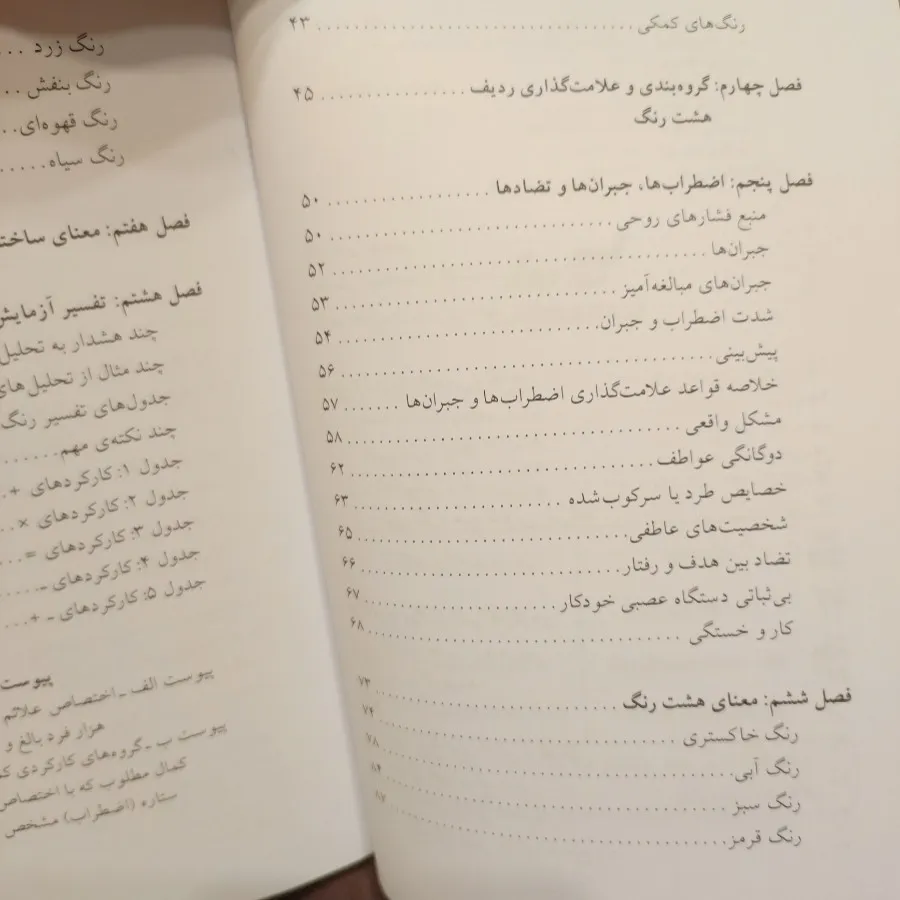 رنگ‌های کمکی ........ ۴۳
فصل چهارم: گروه‌بندی و علامت‌گذاری ردیف ........ ۴۵
هشت رنگ
فصل پنجم: اضطراب‌ها، جبران‌ها و تضادها ........ ۵۰
منبع فشارهای روحی ........ ۵۰
جبران‌ها ........ ۵۲
جبران‌های مبالغه‌آمیز ........ ۵۳
شدت اضطراب و جبران ........ ۵۴
پیش‌بینی ........ ۵۶
خلاصه قواعد علامت‌گذاری اضطراب‌ها و جبران‌ها ........ ۵۷
مشکل واقعی ........ ۵۸
دوگانگی عواطف ........ ۶۲
خصایص طرد یا سرکوب‌شده ........ ۶۳
شخصیت‌های عاطفی ........ ۶۵
تضاد بین هدف و رفتار ........ ۶۶
بی‌ثباتی دستگاه عصبی خودکار ........ ۶۷
کار و خستگی ........ ۶۸
فصل ششم: معنای هشت رنگ ........ ۷۳
رنگ خاکستری ........ ۷۴
رنگ آبی ........ ۷۸
رنگ سبز ........ ۸۴
رنگ قرمز ........ ۸۷
رنگ زرد ...
رنگ بنفش ...
رنگ قهوه‌ای ...
رنگ سیاه ......
فصل هفتم: معنای
فصل هشتم: تفسیر
چند هشدار به
چند مثال از تحلیل‌های
جدول‌های تفسیر رنگ
چند نکته‌ی مهم ......
جدول ۱: کارکردهای + ...
جدول ۲: کارکردهای × ...
جدول ۳: کارکردهای = ...
جدول ۴: کارکردهای ـ ......
جدول ۵: کارکردهای ـ + ...
پیوست الف ـ اختصاص علائم
هزار فرد بالغ و
پیوست ب ـ گروه‌های کارکردی
کمال مطلوب که با اختصاص
ستاره (اضطراب) مشخص